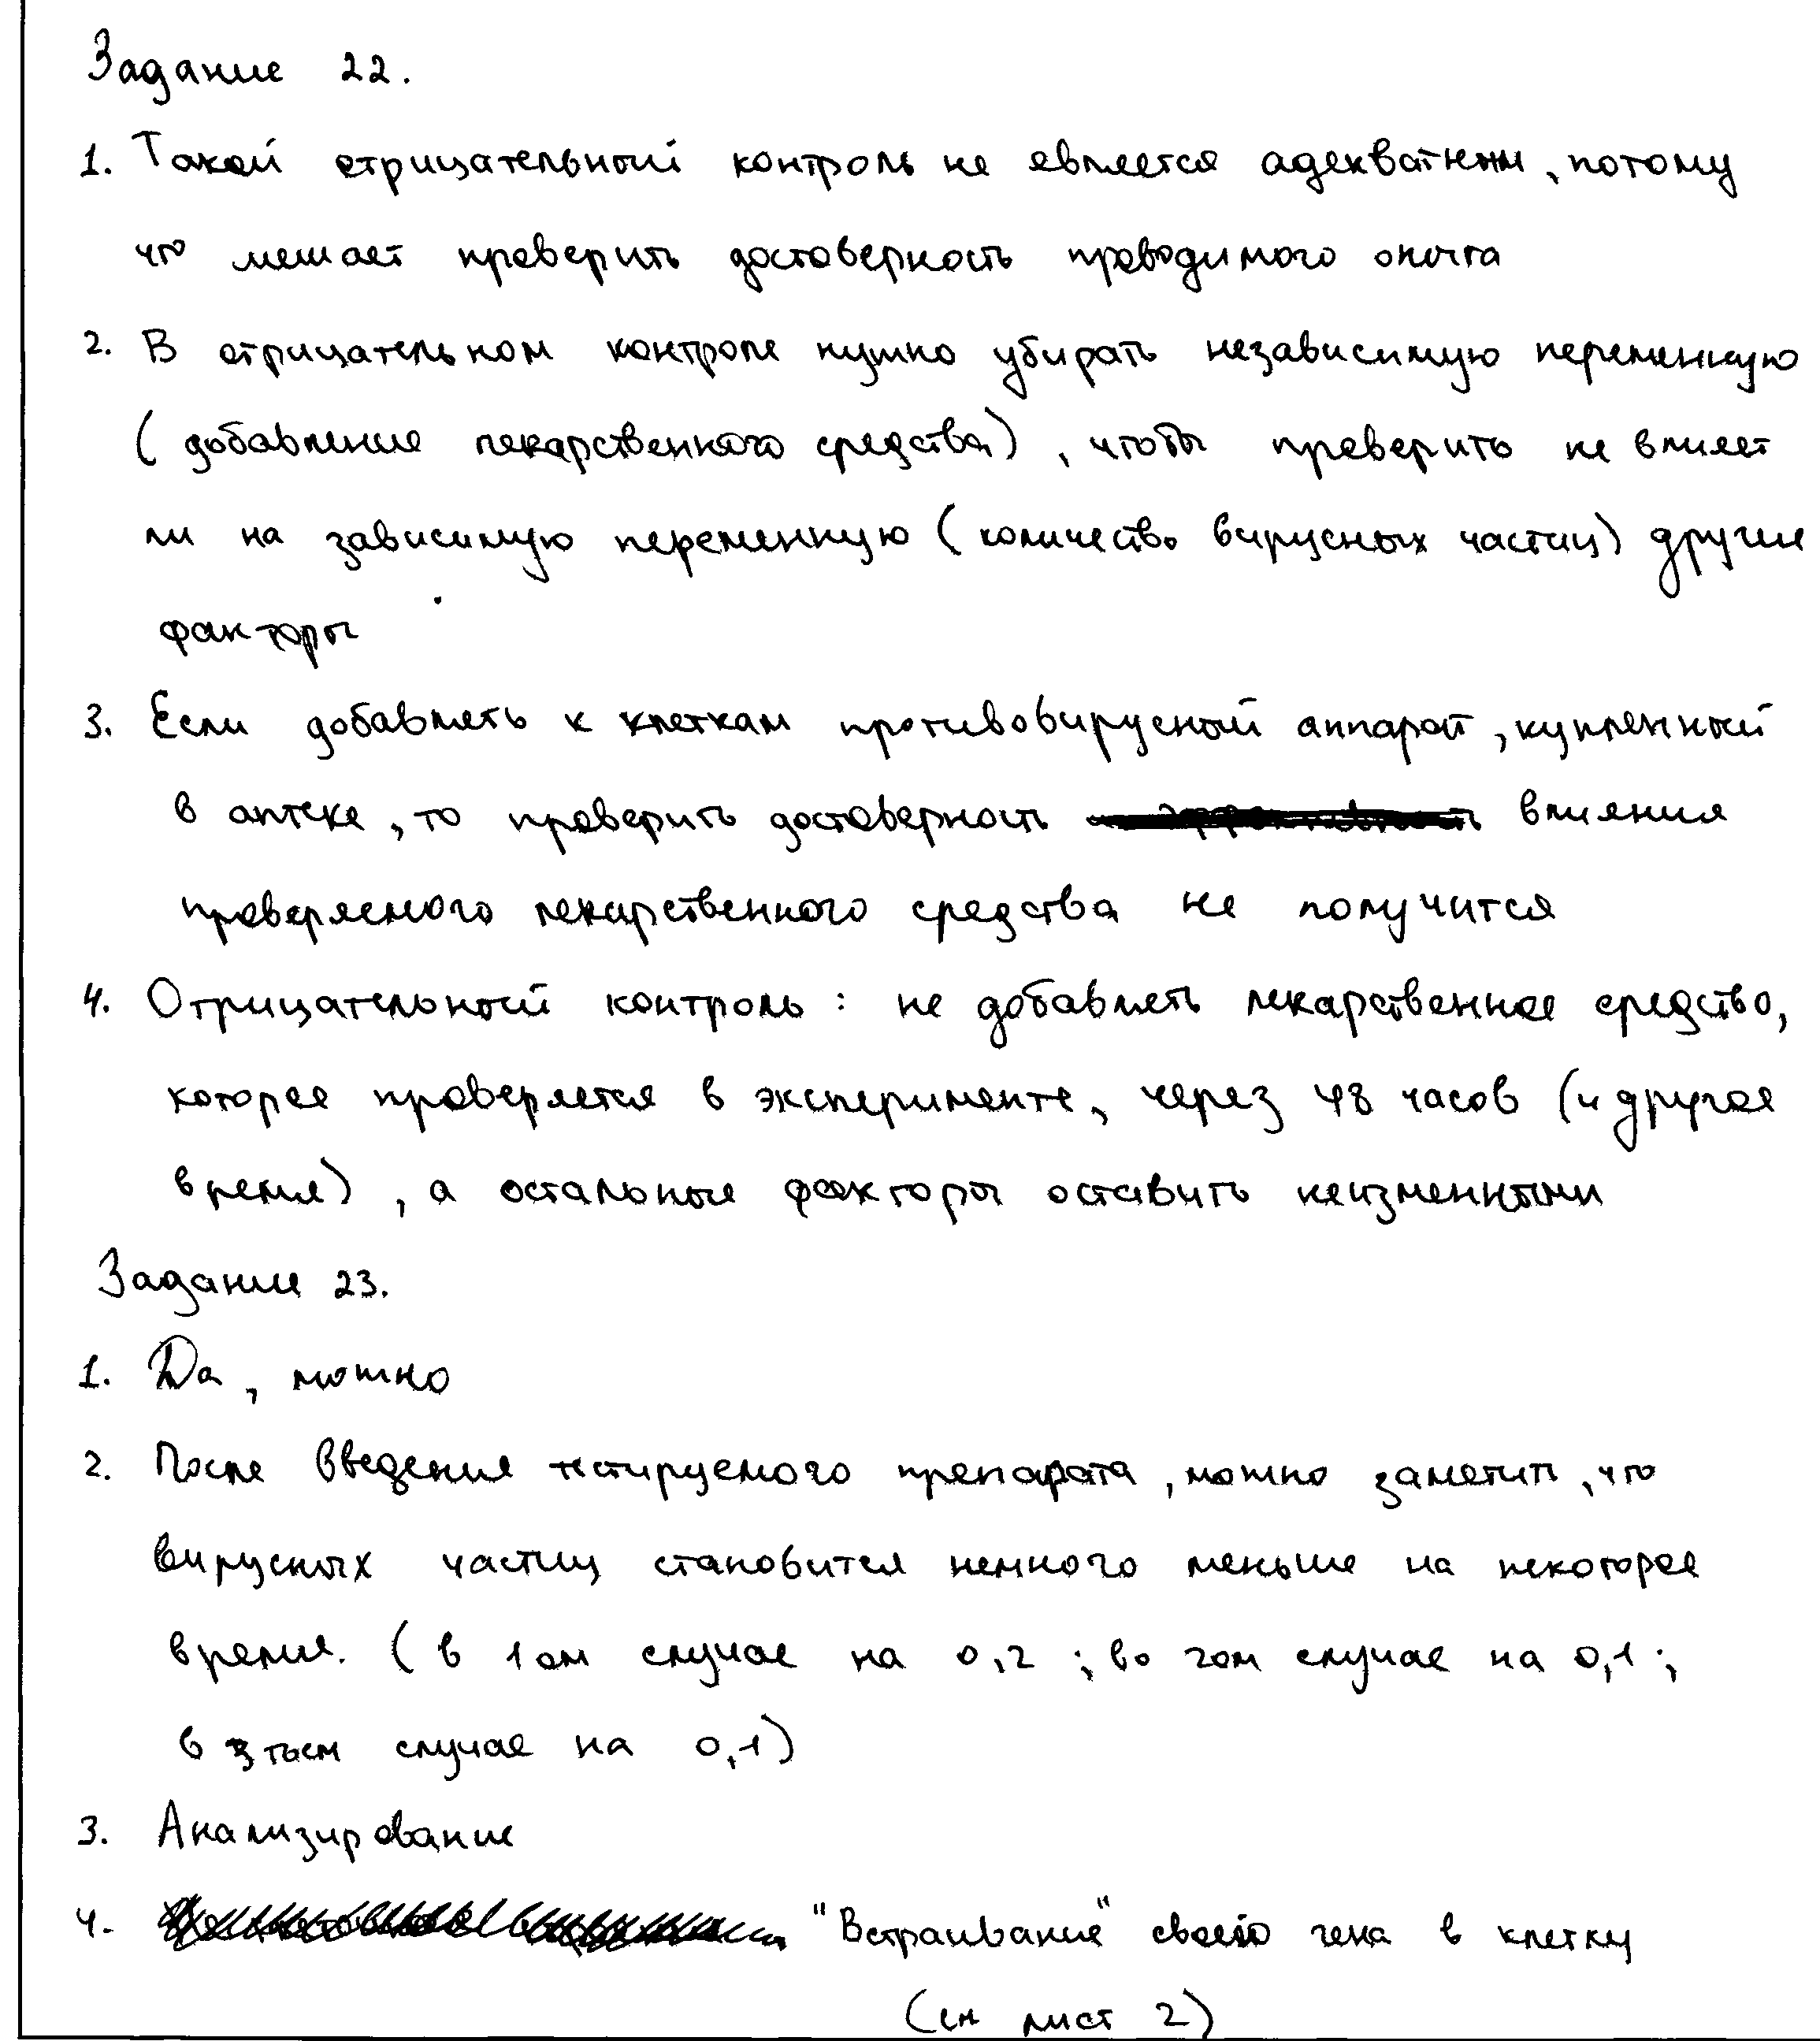 Задание 22.
1. Такой отрицательный контроль не является адекватным, потому
что мешает проверить достоверность проводимого опыта
2. В отрицательном контроле нужно убирать независимую переменную
(добавление лекарственного средства), чтобы проверить не влияет
ли на зависимую переменную (количество вирусных частиц) другие
факторы
3. Если добавлять к клеткам противовирусный аппарат, купленный
в аптеке, то проверить достоверность влияния
проверяемого лекарственного средства не получится
4. Отрицательный контроль: не добавлять лекарственное средство,
которое проверяется в эксперименте, через 48 часов (и другое
время), а остальные факторы оставить неизменными
Задание 23.
1. Да, можно
2. После введения тестируемого препарата, можно заметить, что
вирусных частиц становится немного меньше на некоторое
время. (в 1ом случае на 0,2; во 2ом случае на 0,1;
в 3тьем случае на 0,1)
3. Анализирование
4. "Встраивание" своего гена в клетку
(см лист 2)